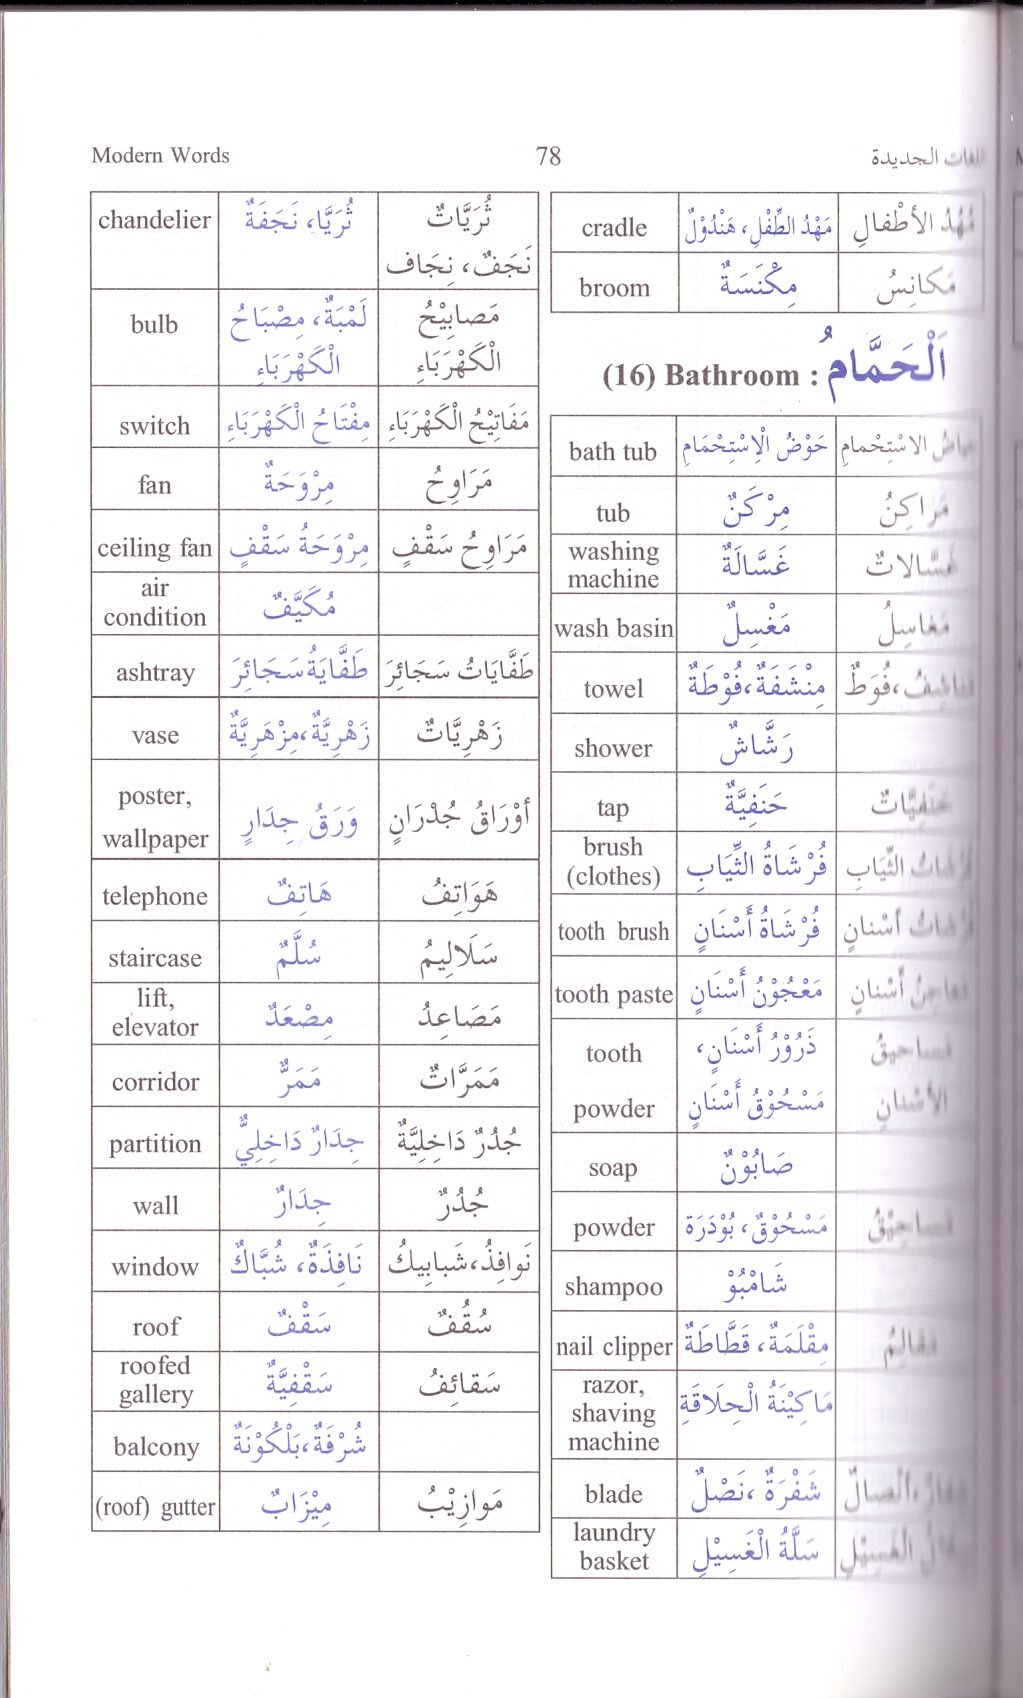 Modern Words 78 الجديدة
chandelier ثُرَيَّا، نَجَفَةٌ ثُرَيَّاتٌ
نَجَفٌ، نِجَاف
bulb لَمْبَةٌ، مِصْبَاحُ مَصَابِيْحُ
الْكَهْرَبَاءِ الْكَهْرَبَاءِ
switch مِفْتَاحُ الْكَهْرَبَاءِ مَفَاتِيْحُ الْكَهْرَبَاءِ
fan مِرْوَحَةٌ مَرَاوِحُ
ceiling fan مِرْوَحَةُ سَقْفٍ مَرَاوِحُ سَقْفٍ
air
condition مُكَيَّفٌ
ashtray طَفَّايَةُ سَجَائِرَ طَفَّايَاتُ سَجَائِرَ
vase زَهْرِيَّةٌ،مِزْهَرِيَّةٌ زَهْرِيَّاتٌ
poster,
wallpaper وَرَقُ جِدَارٍ أوْرَاقُ جُدْرَانٍ
telephone هَاتِفٌ هَوَاتِفُ
staircase سُلَّمٌ سَلَالِيمُ
lift,
elevator مِصْعَدٌ مَصَاعِدُ
corridor مَمَرٌّ مَمَرَّاتٌ
partition جِدَارٌ دَاخِلِيٌّ جُدُرٌ دَاخِلِيَّةٌ
wall جِدَارٌ جُدُرٌ
window نَافِذَةٌ، شُبَّاكٌ نَوافِذُ،شَبابِيكُ
roof سَقْفٌ سُقُفٌ
roofed
gallery سَقْفِيَّةٌ سَقائِفُ
balcony شُرْفَةٌ،بَلْكُوْنَةٌ
(roof) gutter مِيْزَابٌ مَوازِيْبُ
cradle مَهْدُ الطِّفْلِ، هَنْدُوْلٌ الأطْفالِ
broom مِكْنَسَةٌ مَكانِسُ
(16) Bathroom : اَلْحَمَّامُ
bath tub حَوْضُ الْاِسْتِحْمَامِ الاسْتِحْمامِ
tub مِرْكَنٌ مَراكِنُ
washing
machine غَسَّالَةٌ غَسَّالاتٌ
wash basin مَغْسِلٌ مَغاسِلُ
towel مِنْشَفَةٌ،فُوْطَةٌ ،فُوَطٌ
shower رَشَّاشٌ
tap حَنَفِيَّةٌ حَنَفِيَّاتٌ
brush
(clothes) فُرْشَاةُ الثِّيَابِ الثِّيَابِ
tooth brush فُرْشَاةُ أَسْنَانٍ أَسْنانٍ
tooth paste مَعْجُوْنُ أَسْنَانٍ أَسْنانٍ
tooth ذَرُوْرُ أَسْنَانٍ، مَساحيقُ
powder مَسْحُوْقُ أَسْنَانٍ الأسْنانِ
soap صَابُوْنٌ
powder مَسْحُوْقٌ، بُوْدَرَة مَساحِيْقُ
shampoo شَامْبُوْ
nail clipper مِقْلَمَةٌ، قَطَّاطَةٌ مَقالِمُ
razor,
shaving
machine مَاكِيْنَةُ الْحِلَاقَةِ
blade شَفْرَةٌ ،نَصْلٌ
laundry
basket سَلَّةُ الْغَسِيْلِ الْغَسِيْلِ